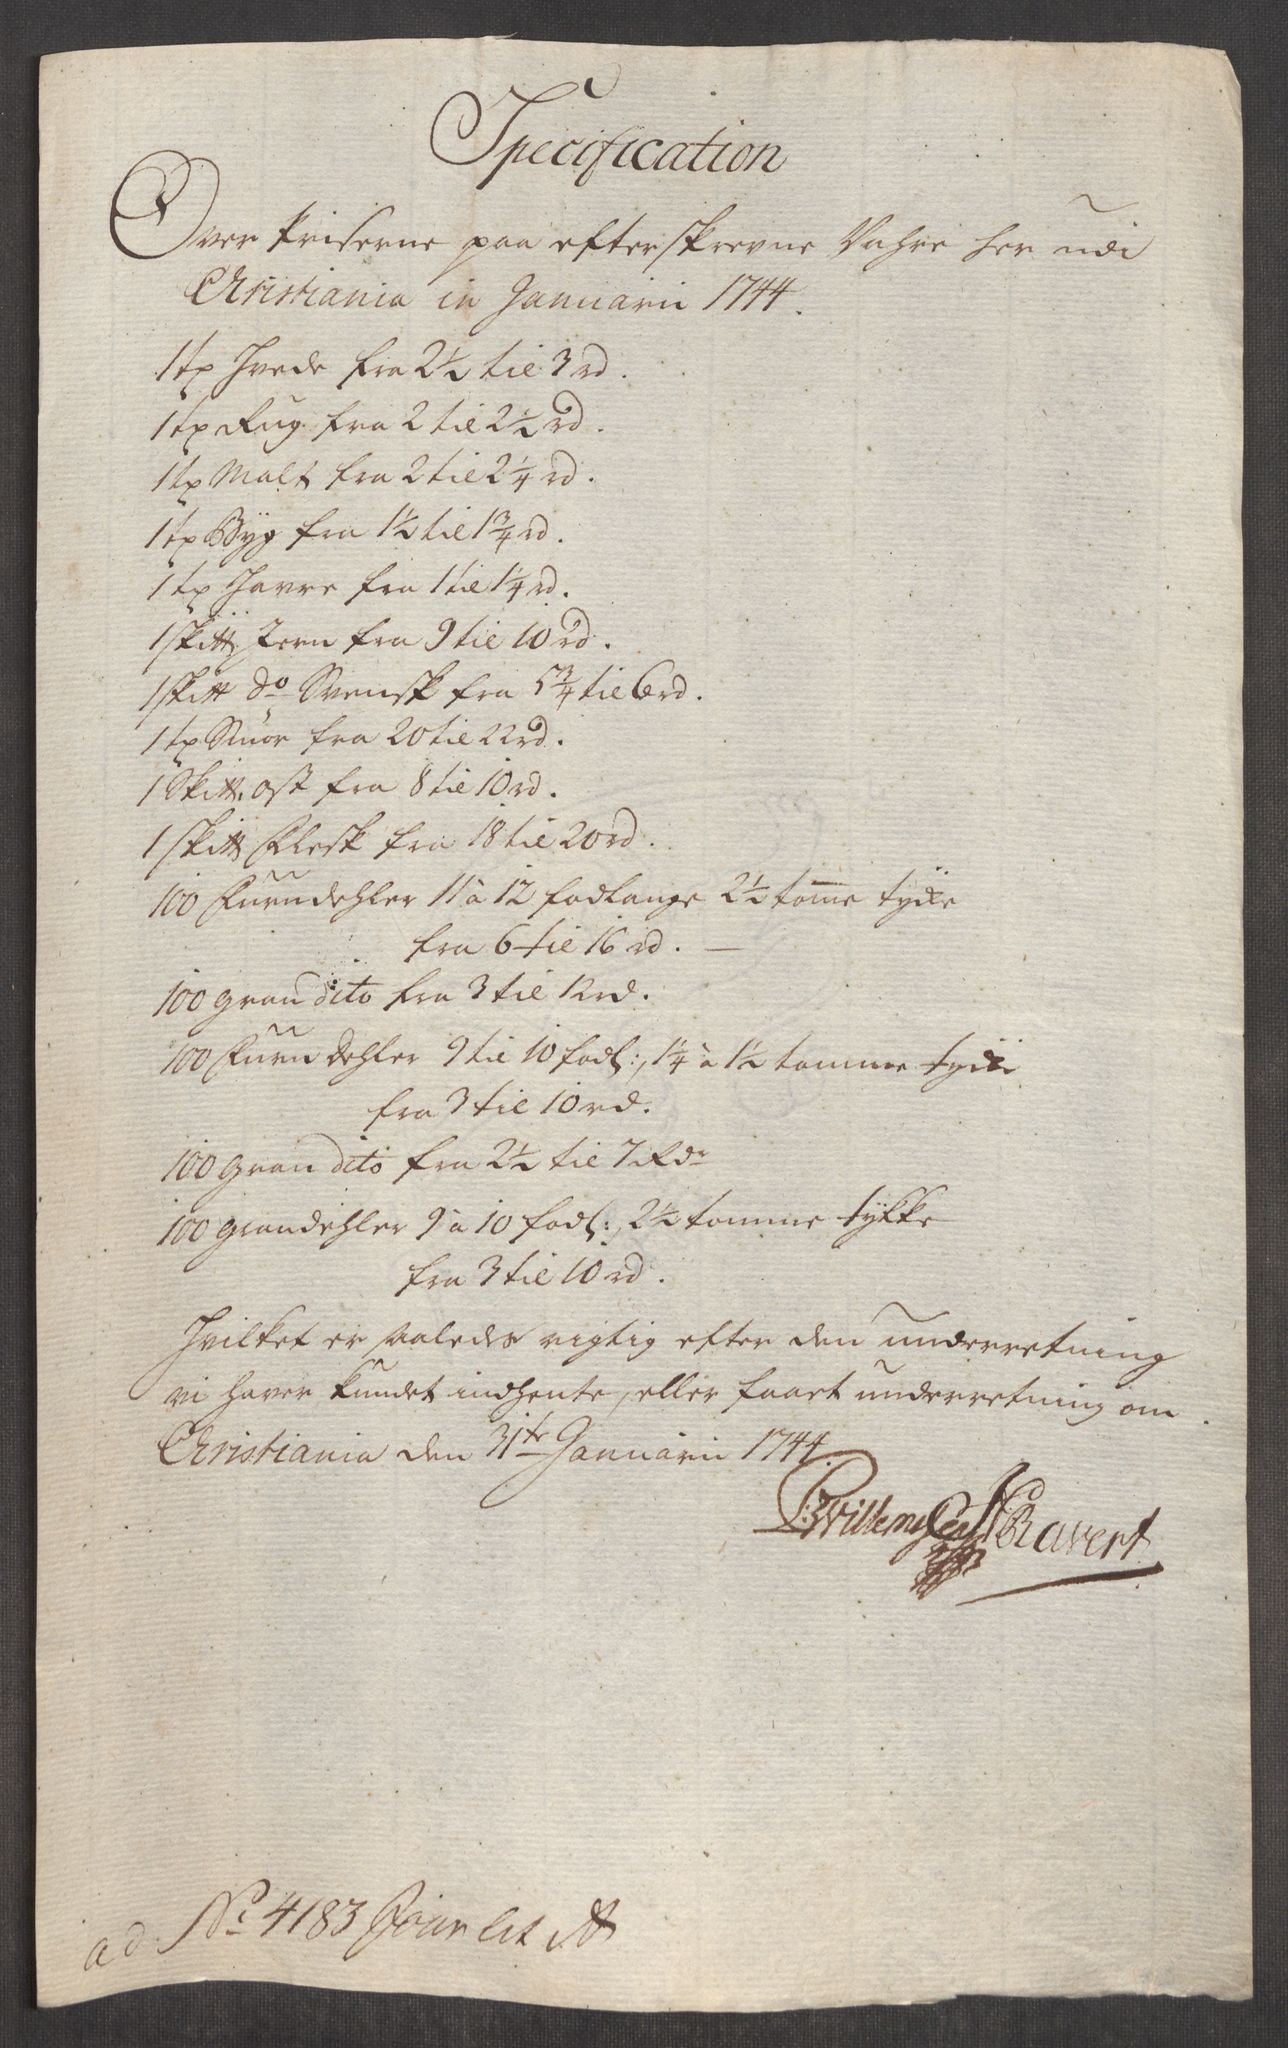 Specification
Over Priserne paa efterskrevne Vahre her udi
Christiania in Januarii 1744.
1 tø Hvede fra 2½ til 3 rd.
1 tø Rug fra 2 til 2½ rd.
1 tø Malt fra 2 til 2¼ rd.
1 tø Byg fra 1½ til 1¾ rd.
1 tø Havre fra 1 til 1¼ rd.
1 skitt Jern fra 9 til 10 rd.
1 skitt do Svensk fra 5¾ til 6 rd.
1 tø Smör fra 20 til 22 rd.
1 Skitt. Ost fra 8 til 10 rd.
1 skitt Flesk fra 18 til 20 rd.
100 Furudehler 11 à 12 fodlange 2½ tomme tyke
fra 6 til 16 rd. —
100 gran dito fra 3 til 12 rd.
100 Furu dehler 9 til 10 fodl:, 1¼ à 1½ tomme tyke
fra 3 til 10 rd.
100 gran dito fra 2½ til 7 Rdr
100 grandehler 9 à 10 fodl:, 2½ tomme tykke
fra 3 til 10 rd.
Hvilket er saaledes rigtig efter den underretning
vi haver kundet indhente, eller faaet underretning om.
Christiania den 31te Januarii 1744.
Willemsen Ravert
ad No 4183 Jour Lit A